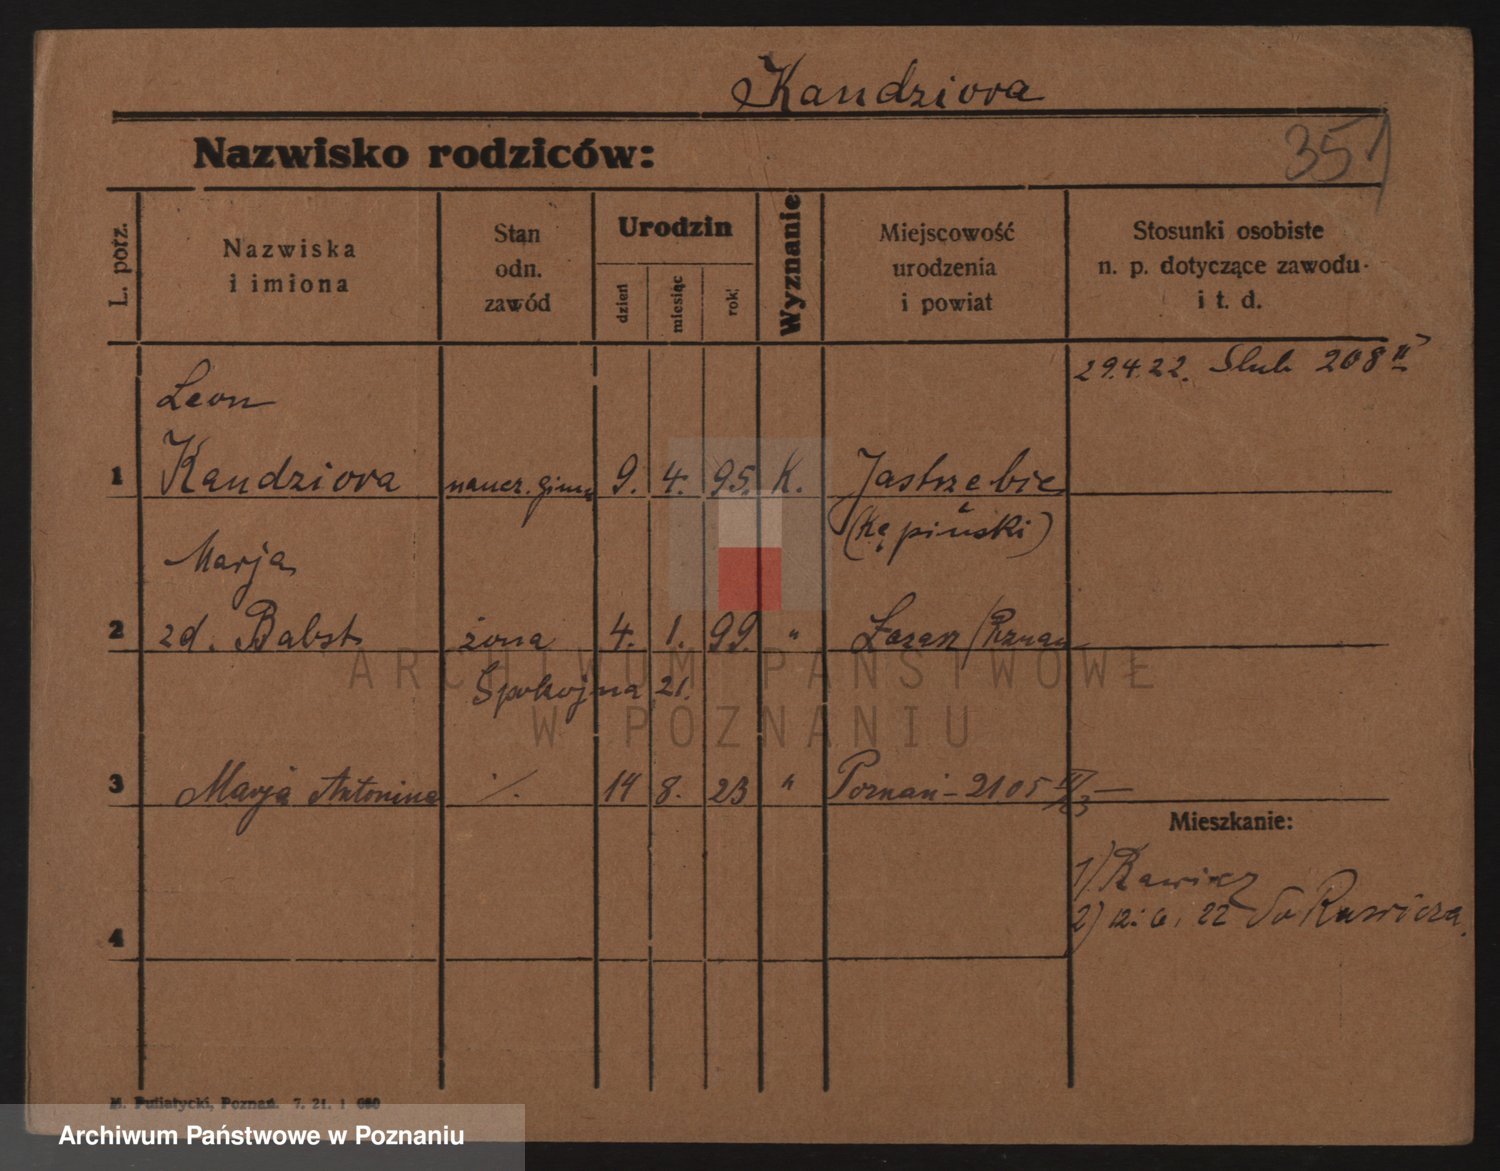 Kandziora
Nazwisko rodziców:
351
L. porz.
Nazwiska
i imiona
Stan
odn.
zawód
Urodzin
dzień
miesiąc
rok
Wyznanie
Miejscowość
urodzenia
i powiat
Stosunki osobiste
n. p. dotyczące zawodu
i t. d.
29.4.22. Slub 208 II
Leon
1 Kandziora naucz. gimn 9. 4. 95. K. Jastrzebie
(Kępiński)
Marja
2 zd. Babst żona 4. 1. 99. " Łazarz (Poznań
Spokojna 21.
3 Marja Antonina ./. 14 8. 23 " Poznań - 2105
Mieszkanie:
1) Rawicz
2) 12. 6. 22 do Rawicza.
4
M. Putiatycki, Poznań. 7. 21. 1 080
ARCHIWUM PAŃSTWOWE
W POZNANIU
Archiwum Państwowe w Poznaniu